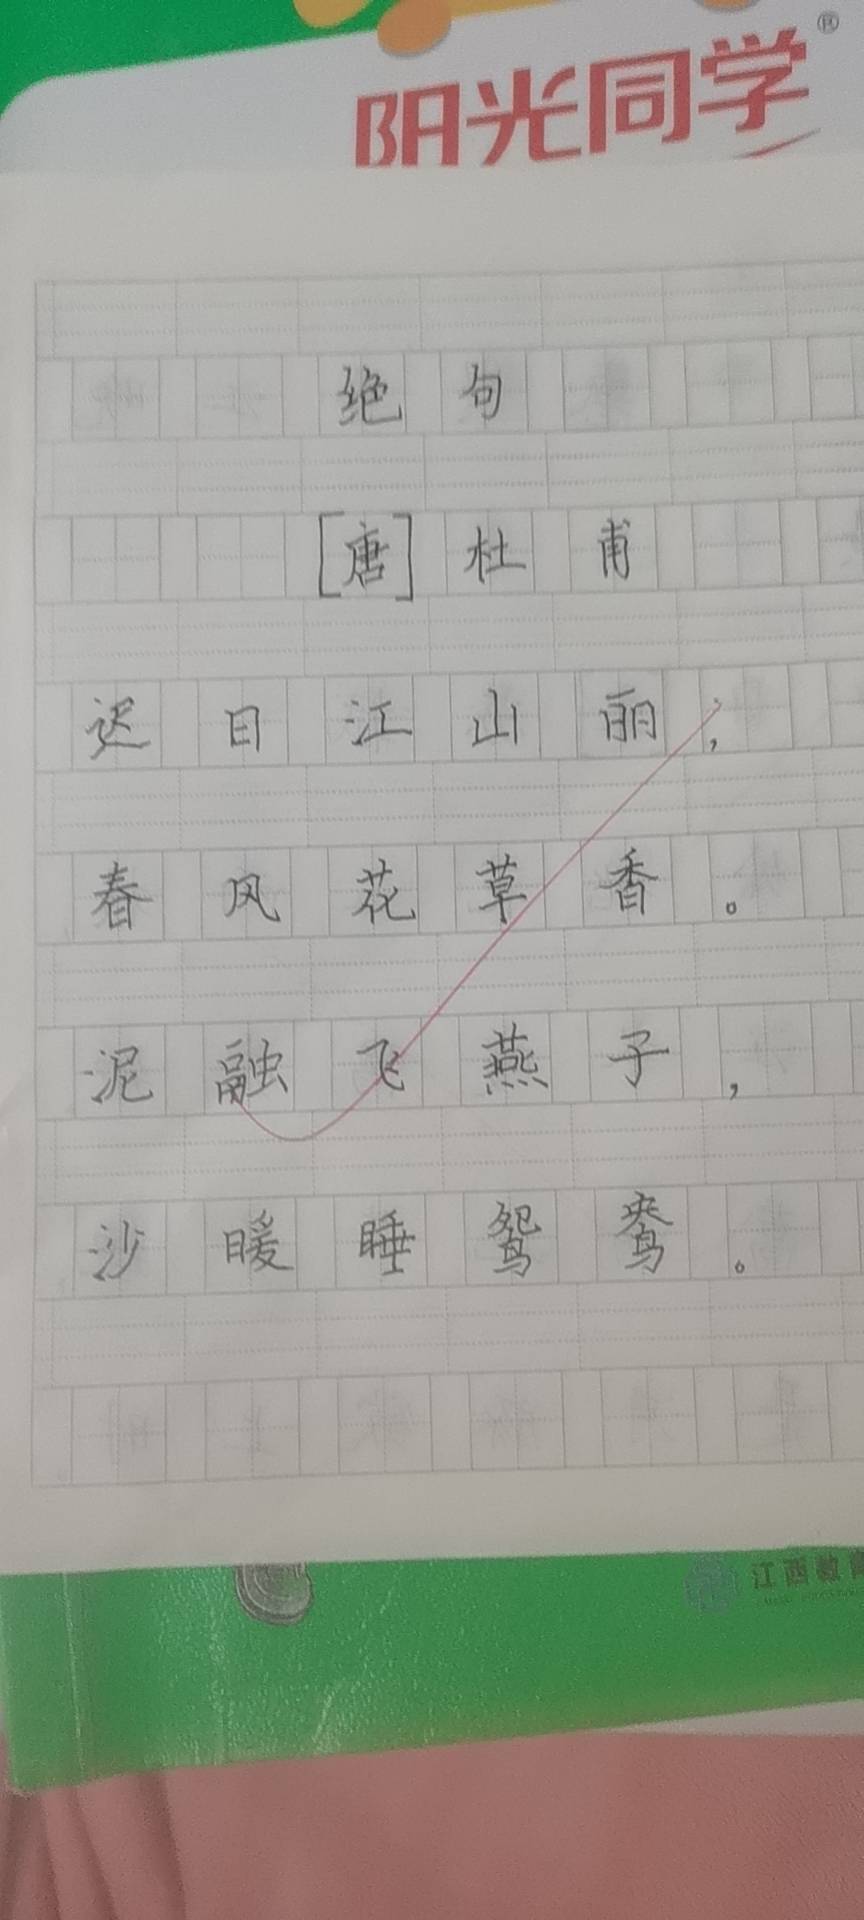 阳光同学®
绝句
[唐]杜甫
迟日江山丽，
春风花草香。
泥融飞燕子，
沙暖睡鸳鸯。
江西教育